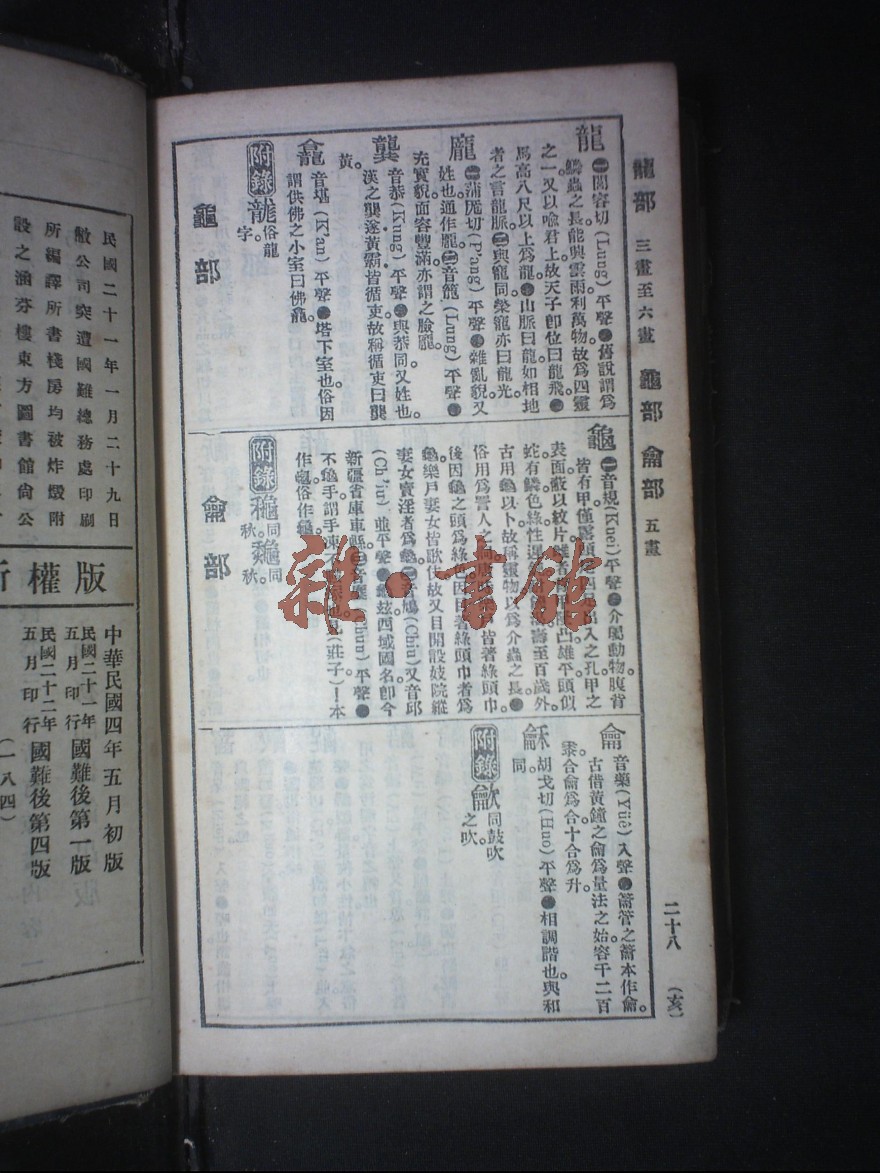 龍部 三畫至六畫 龜部 龠部 五畫
二十八 (亥)
龍 ㊀閭容切(Lung)平聲●舊說謂爲
鱗蟲之長能與雲雨利萬物故爲四靈
之一又以喩君上故天子卽位曰龍飛●
馬高八尺以上爲龍●山脈曰龍如相地
者之言龍脈㊁與寵同榮寵亦曰龍光
龐 ㊀蒲厖切(P'ang)平聲●雜亂貌又
姓也通作龎㊁音籠(Lung)平聲●
充實貌面容豐滿亦謂之臉龐
龔 音恭(Kung)平聲●與恭同又姓也
漢之龔遂黃霸皆循吏故稱循吏曰龔
黃
龕 音堪(K'an)平聲●塔下室也俗因
謂供佛之小室曰佛龕
附錄 俗龍
字
龜部
龜 ㊀音規(Kuei)平聲●介屬動物腹背
皆有甲僅露頭
出入之孔甲之
表面蔽以紋片
凸雄平頭似
蛇有鱗色綠性遲
壽至百歲外
古用龜以卜故稱靈物以爲介蟲之長●
俗用爲詈人之
皆著綠頭巾
後因龜之頭爲綠色因目著綠頭巾者爲
龜樂戶妻女皆歌伎故又目開設妓院縱
妻女賣淫者爲龜㊁音鳩(Chiu)又音邱
(Ch'iu)並平聲●龜玆西域國名卽今
新疆省庫車縣
平聲●
不龜手謂手凍不
(莊子)
本
作
俗作龜
附錄 龝同
秋
同
秋
龠部
龠 音藥(Yüē)入聲●籥管之籥本作龠
古借黃鐘之龠爲量法之始容千二百
黍合龠爲合十合爲升
龢 胡戈切(Huo)平聲●相調諧也與和
同
附錄 龡同鼓吹
之吹
民國二十一年一月二十九日
敝公司突遭國難總務處印刷
所編譯所書棧房均被炸燬附
設之涵芬樓東方圖書館尙公
版權所
中華民國四年五月初版
民國二十一年
五月印行 國難後第一版
民國二十二年
五月印行 國難後第四版
(一八四)
雜·書館